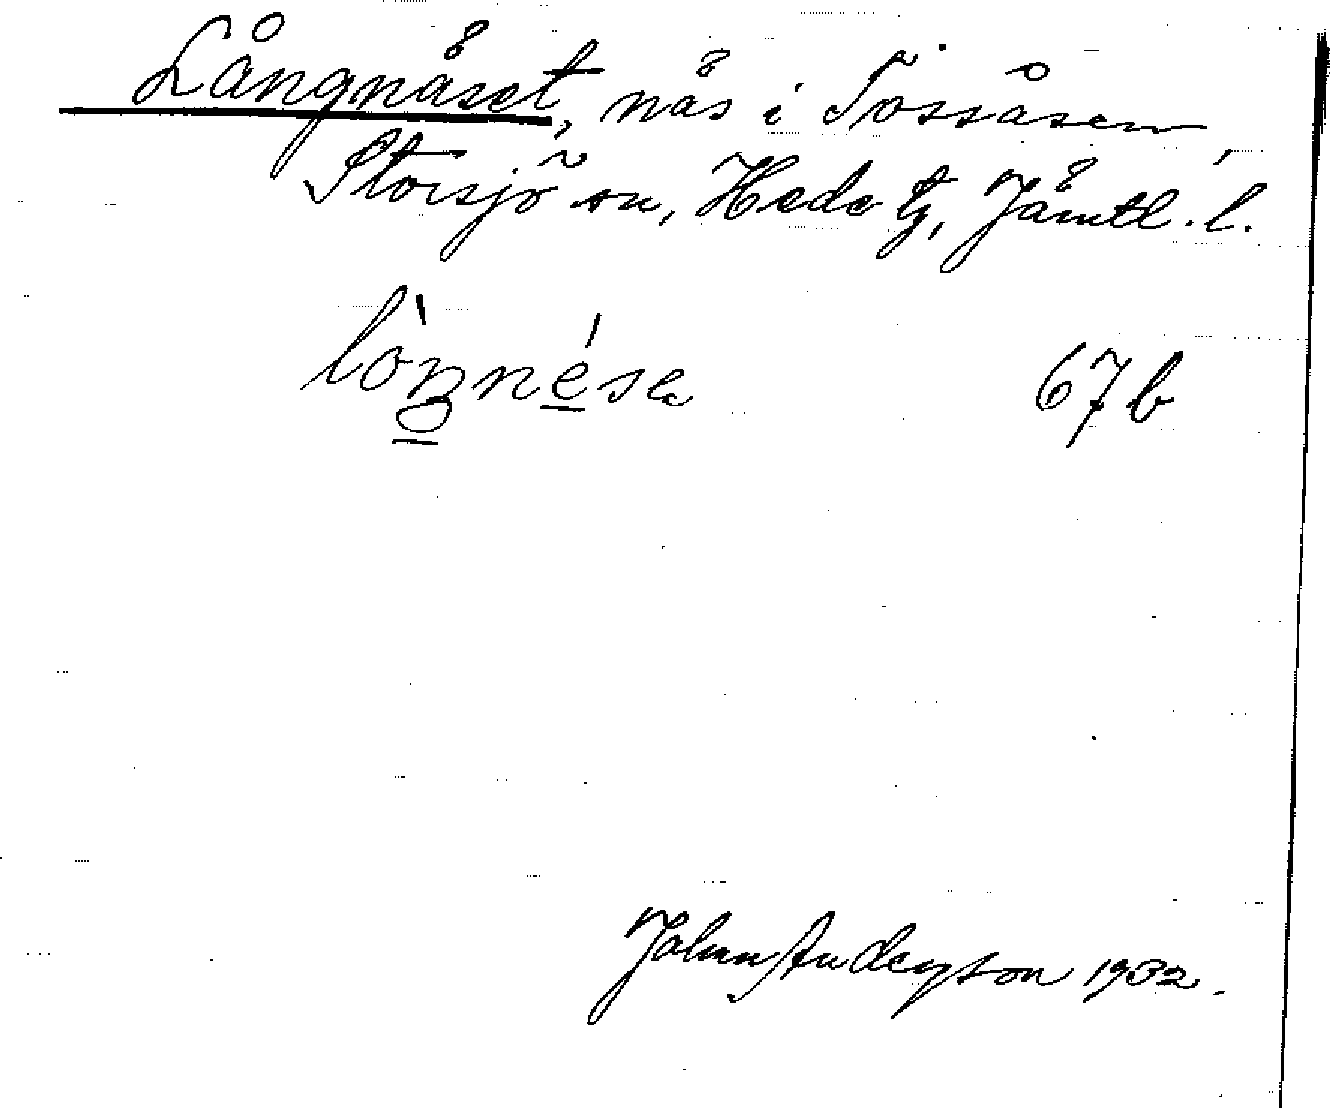 Långnäset, näs i Tossåsen,
Storsjö sn, Hede tg, Jämtl. l.
67 b
Johan Anderson 1932.